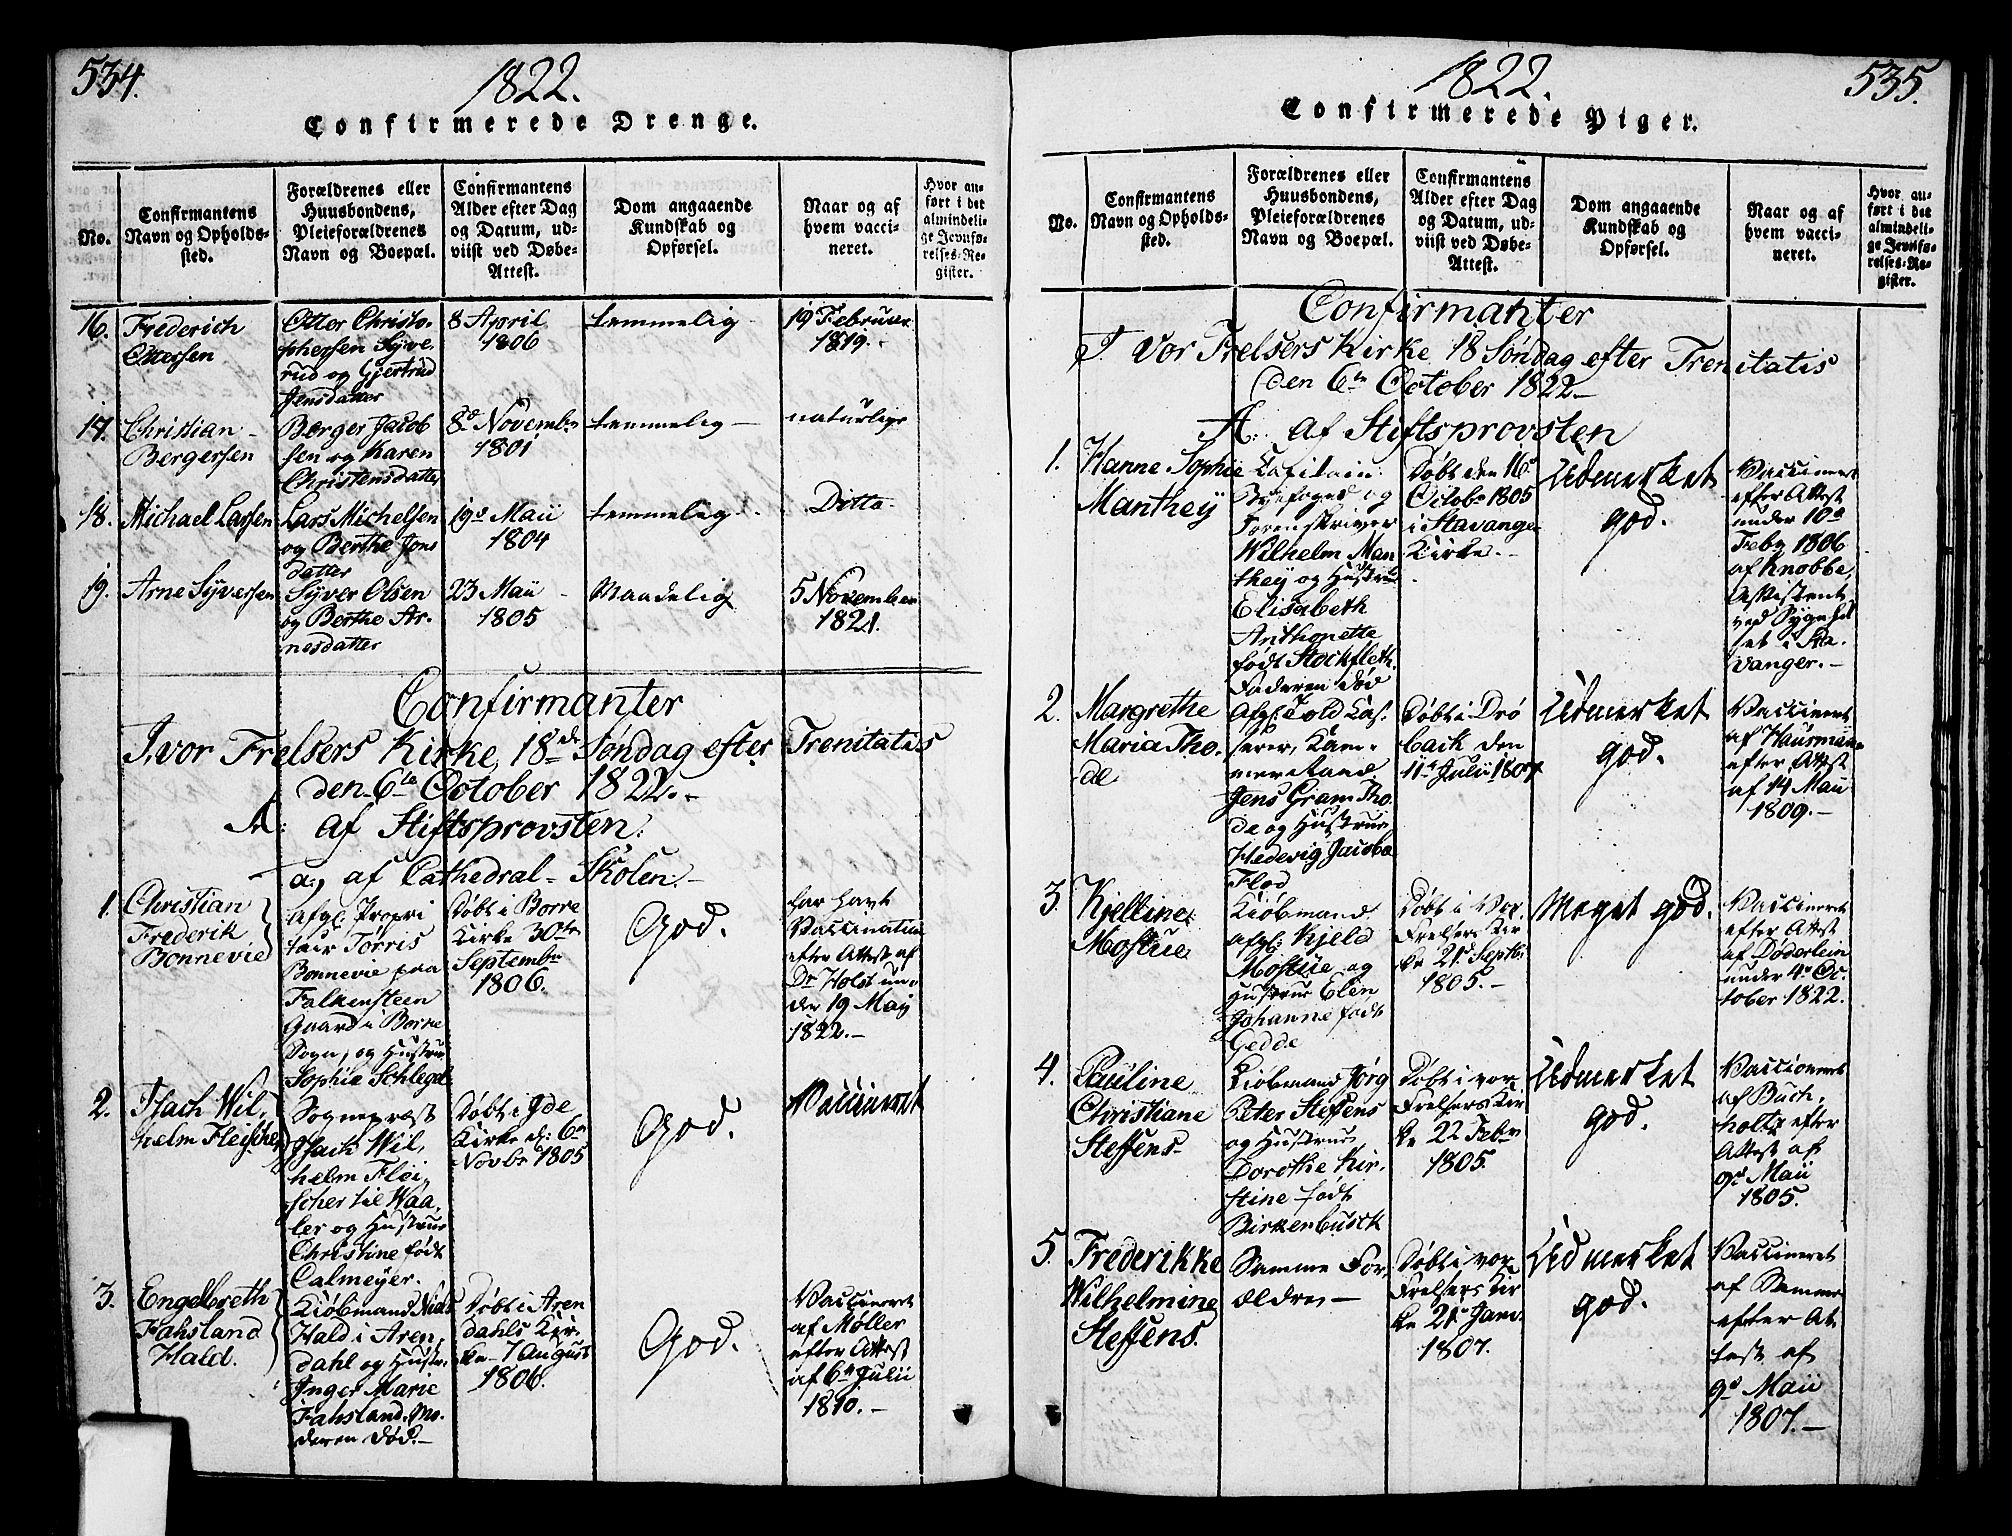 534.
1822.
Confirmerede Drenge.
No.
Confirmantens
Navn og Opholds-
sted.
Forældrenes eller
Huusbondens,
Pleieforældrenes
Navn og Boepæl.
Confirmantens
Alder efter Dag
og Datum, ud-
viist ved Døbe-
Attest.
Dom angaaende
Kundskab og
Opførsel.
Naar og af
hvem vacci-
neret.
Hvor an-
ført i det
almindeli-
ge Jevnfø-
relses-Re-
gister.
16.
Frederich
Ottersen
Otter Christo-
phersen Syve-
rud og Gjertrud
Jensdatter
8 April
1806
temmelig
19 Februar
1819.
17.
Christian
Bergersen
Berger Jacob
sen og Karen
Christensdatter
8de Novembr
1801
temmelig
naturlige
18.
Michael Larsen
Lars Michelsen
og Berthe Jons
datter
19de Maii
1804
temmelig
Ditto
19.
Arne Syversen
Syver Olsen
og Berthe Ar-
nesdatter
23 Maii
1805
Maadelig
5 November
1821.
Confirmanter
I vor Frelsers Kirke, 18de Søndag efter Trenitatis
den 6te October 1822.
A: af Stiftsprovsten:
a, af Cathedral-Skolen.
1.
Christian
Frederik
Bonnevie
Afgl. Propri
tair Torris
Bonnevie paa
Falkensteen
Gaard i Borre
Sogn, og Hustrue
Sophie Schlegel
Døbt i Borre
Kirke 30te
Septembr
1806.
God.
har havt
Vaccinatien
efter Attest af
Dr Holst un-
der 19 May
1822.
2.
Isach Wil-
helm Fleischer
Sognepræst
Isach Wil-
helm Flei-
scher til Waa-
ler og Hustrue
Christine født
Calmeyer.
Døbt i Ide
Kirke d: 6te
Novbr 1805
God.
Vaccineret
3.
Engelbreth
Fahsland
Hald.
Kiøbmand Niels
Hald i Aren-
dahl og Hustr:
Inger Marie
Fahsland. Mo-
deren død.
Døbt i Aren
dahls Kir-
ke 7 August
1806.
God.
Vaccineret
af Møller
efter Attest
af 6te Julii
1810.
1822.
535.
Confirmerede Piger.
No.
Confirmantens
Navn og Opholds-
sted.
Forældrenes eller
Huusbondens,
Pleieforældrenes
Navn og Boepæl.
Confirmantens
Alder efter Dag
og Datum, ud-
viist ved Døbe-
Attest.
Dom angaaende
Kundskab og
Opførsel.
Naar og af
hvem vacci-
neret.
Hvor an-
ført i det
almindeli-
ge Jevnfø-
relses-Re-
gister.
Confirmanter
I Vor Frelsers Kirke 18 Søndag efter Trenitatis
den 6te October 1822
A: af Stiftsprovsten
1.
Hanne Sophie
Manthey
Capitain
Byefoged og
Sorenskriver
Wilhelm Man
they og Hustrue
Elisabeth
Anthonette
født Stockfleth.
Faderen død
Døbt den 16de
Octobr 1805
i Stavanger
Kirke.
Udmerket
god.
Vaccineret
efter Attest
under 10de
Febr 1806
af Knobbe,
Assistent
ved Sygehu
set i Sta-
vanger.
2.
Margrethe
Maria Tho-
de
Afgl. Told Cas-
serer, Kam-
merraad
Jens Gram Tho
de og Hustrue
Hedevig Jacoba
Flod
Døbt i Drø
back den
11te Julii 1807
Udmerket
god.
Vaccineret
af Hausmann
efter Attest
af 14 Maii
1809.
3.
Kjelline
Mostue
Kiøbmand
afgl: Kjeld
Mostue og
Hustrue Elen
Johanne født
Gedde
Døbt i Vor
Frelsers Kir
ke 21de Septbr
1805.
Meget god.
Vaccineret
efter Attest
af Døderlein
under 4de Oc-
tober 1822.
4.
Pauline
Christiane
Steffens
Kiøbmand Jørg
Peter Steffens
og Hustrue
Dorothe Kir-
stine født
Birkenbusch
Døbt i vor
Frelsers Kir
ke 22 Febr
1805.
Udmerket
god.
Vaccineret
af Buch-
holtz efter
Attest af
9de Maii
1805.
5.
Frederikke
Wilhelmine
Steffens.
Samme For-
ældre
Døbt i vor
Frelsers Kir
ke 21de Janr
1807.
Udmerket
god.
Vaccineret
af Samme
efter At
test af
9de Maii
1807.